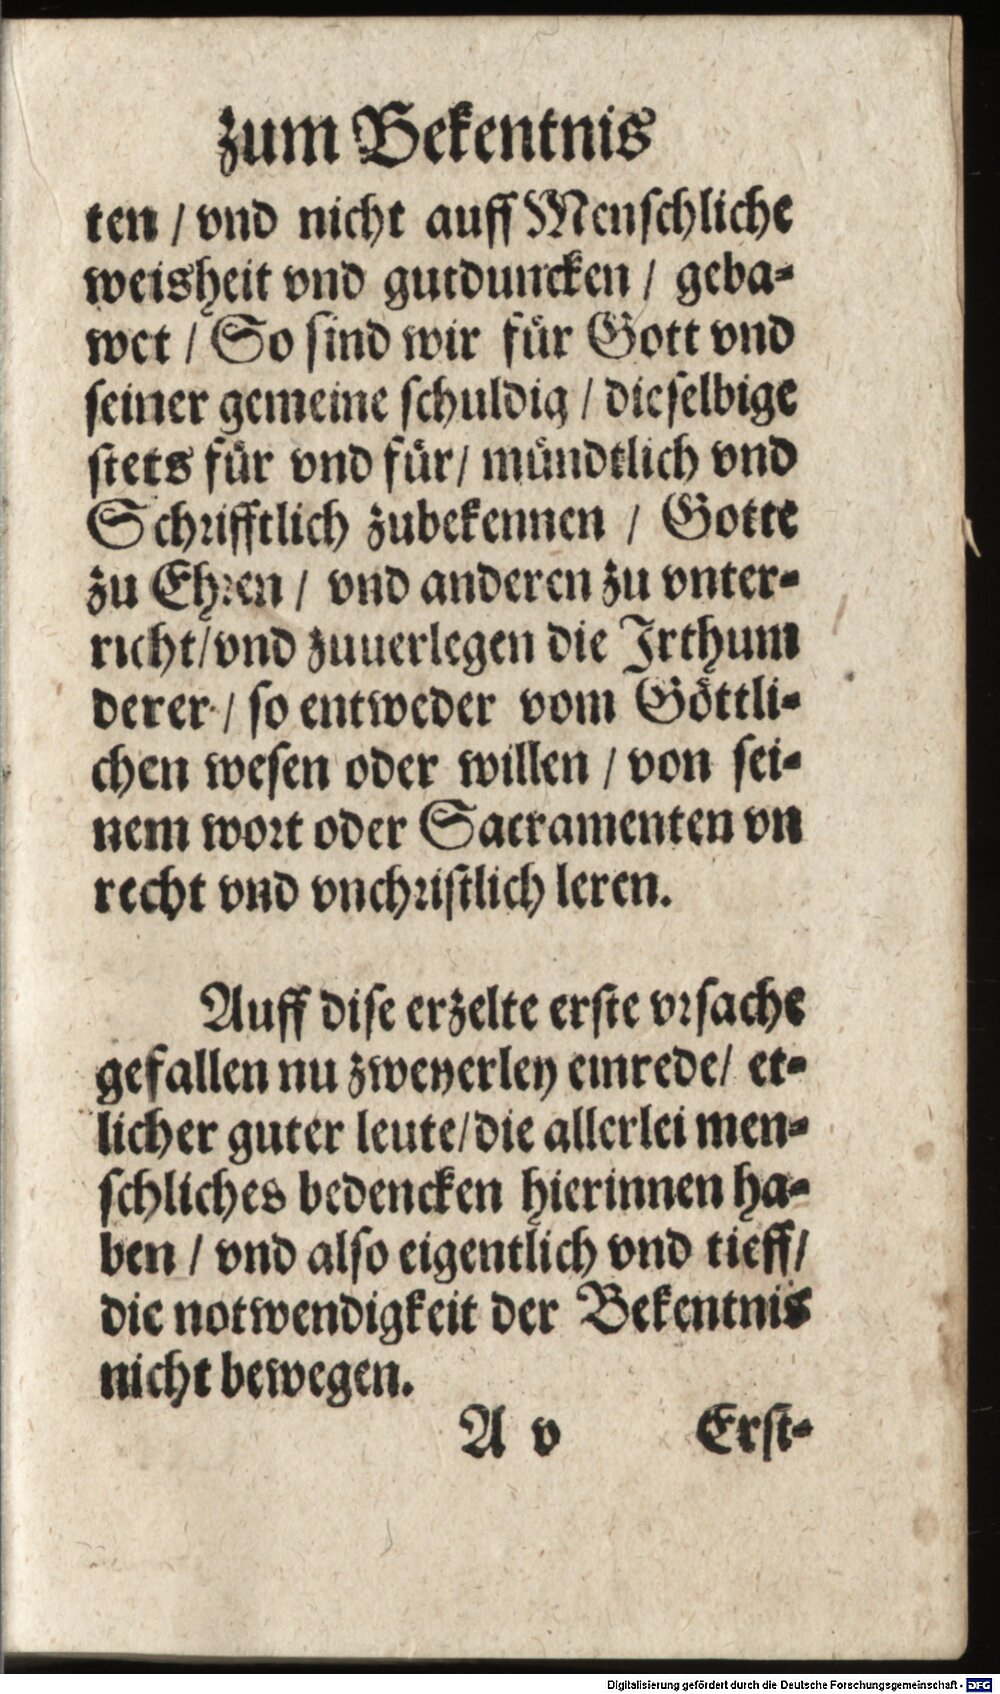 zum Bekentnis
ten / vnd nicht auff Menschliche
weisheit vnd gutduncken / geba-
wet / So sind wir für Gott vnd
seiner gemeine schuldig / dieselbige
stets für vnd für / mündtlich vnd
Schrifftlich zubekennen / Gotte
zu Ehren / vnd anderen zu vnter-
richt / vnd zuuerlegen die Irthum
derer / so entweder vom Göttli-
chen wesen oder willen / von sei-
nem wort oder Sacramenten vn
recht vnd vnchristlich leren.
Auff dise erzelte erste vrsache
gefallen nu zweyerley einrede / et-
licher guter leute / die allerlei men-
schliches bedencken hierinnen ha-
ben / vnd also eigentlich vnd tieff /
die notwendigkeit der Bekentnis
nicht bewegen.
A v Erst-
Digitalisierung gefördert durch die Deutsche Forschungsgemeinschaft - DFG